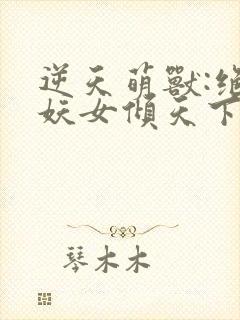 逆天萌獸:絕
妖女傾天下
琴木木